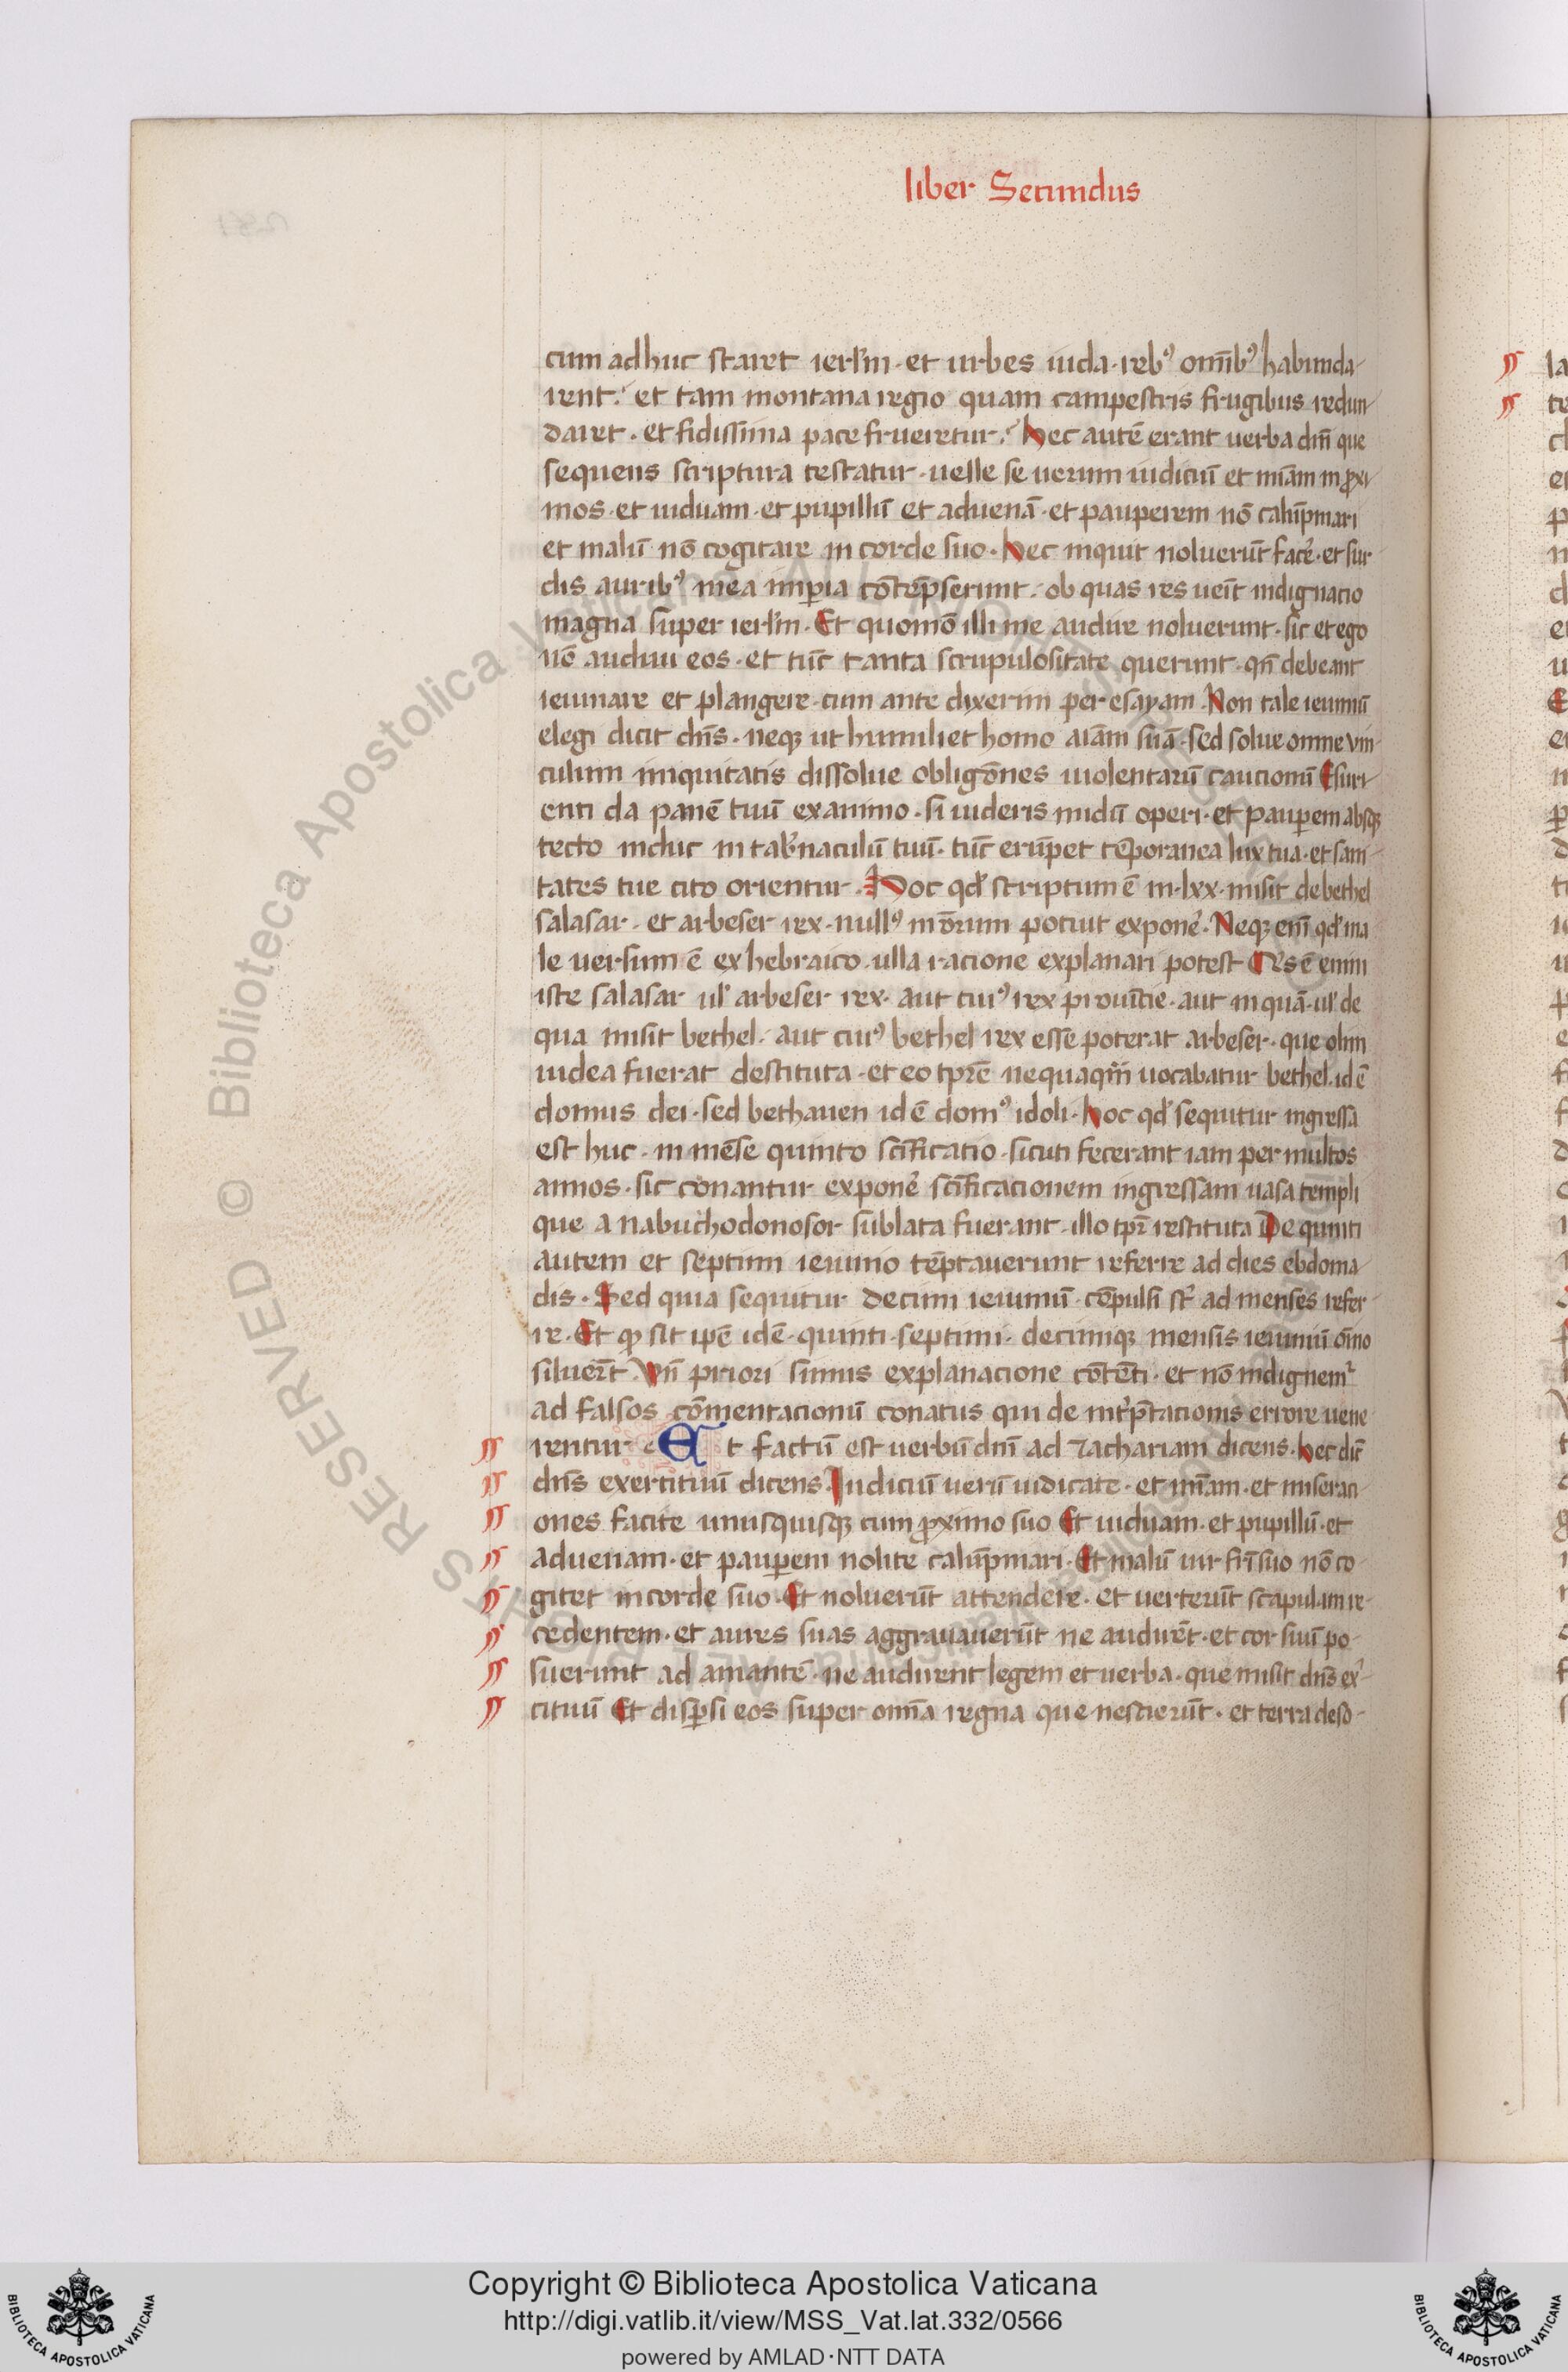 liber Secundus
cum adhuc staret ierl'm · et urbes iuda · reb⁹ om̄ib⁹ habunda-
rent. et tam montana regio quam campestris frugibus redun-
daret · et fidissima pace frueretur. hec autē erant uerba dn̄i que
sequens scriptura testatur · uelle se uerum iudiciū et mīam in ꝓxi-
mos · et uiduam · et pupillū et aduenā · et pauperem nō calūpmari
et malū nō cogitare in corde suo · hec inquit noluerūt facē · et sur-
dis aurib⁹ mea imꝑia cōtēpserunt · ob quas res uēit indignacio
magna super ierl'm · Et quomō illi me audire noluerunt · sic et ego
nō audiui eos · et tūc tanta scrupulositate querunt · qn̄ debeant
ieiunare et plangere · cum ante dixerim per esayam · Non tale ieiuniū
elegi dicit dn̄s · neqꝫ ut humiliet homo aīam suā · sed solue omne vin-
culum iniquitatis dissolue obligōnes uiolentarū caucionū Esuri-
enti da panē tuū ex animo · si uideris nudū operi · et pauꝑem absqꝫ
tecto induc in tab'naculū tuū · tūc erūpet tēporanea lux tua · et sani-
tates tue cito orientur · Hoc qd' scriptum ē in · lxx · misit de bethel
salasar · et arbeser rex · null⁹ n̄rorum potuit exponē · Neqꝫ enī qd' ma
le uersum ē ex hebraico · ulla racione explanari potest Qis ē enim
iste salasar ul' arbeser rex · aut cui⁹ rex prouīcie · aut in quā · ul' de
qua misit bethel · aut cui⁹ bethel rex esse poterat arbeser · que olim
iudea fuerat destituta · et eo tpr̄e nequaqm̄ uocabatur bethel · id ē
domus dei · sed bethauen id ē dom⁹ idoli · hoc qd' sequitur ingressa
est huc · in mēse quinto scīficatio · sicuti fecerant iam per multos
annos · sic conantur exponē scīficacionem ingressam uasa templi
que a nabuchodonosor sublata fuerant · illo tpr̄e restituta De quinti
autem et septimi ieiunio tēptauerunt referre ad dies ebdoma-
dis · Sed quia sequitur decimi ieiuniū · cōpulsi st̄ ad menses refer-
re · Et qꝫ sit ip̄e idē · quinti · septimi · decimiqꝫ mensis ieiuniū ōino
siluer̄t Vn̄ priori simus explanacione cōtēti · et nō indignem²
ad falsos cōmentacionū conatus qui de int'p̄tacionis errore uene
rentur Et factū est uerbū dn̄i ad zachariam dicens · hec dic̄
dn̄s exercituū dicens Iudiciū uerū iudicate · et mīam · et miseraci-
ones facite unusquisqꝫ cum ꝓximo suo Et uiduam · et pupillū · et
aduenam · et pauꝑem nolite calūpmari · Et malū uir fr̄i suo nō co-
gitet in corde suo · Et noluerūt attendere · et uerterūt scapulam re-
cedentem · et aures suas aggrauauerūt ne audirēt · et cor suū po-
suerunt ad amantē · ne audirent legem et uerba · que misit dn̄s ex'-
cituū Et disꝑsi eos super om̄a regna que nescierūt · et terra deso-
Copyright © Biblioteca Apostolica Vaticana
http://digi.vatlib.it/view/MSS_Vat.lat.332/0566
powered by AMLAD·NTT DATA